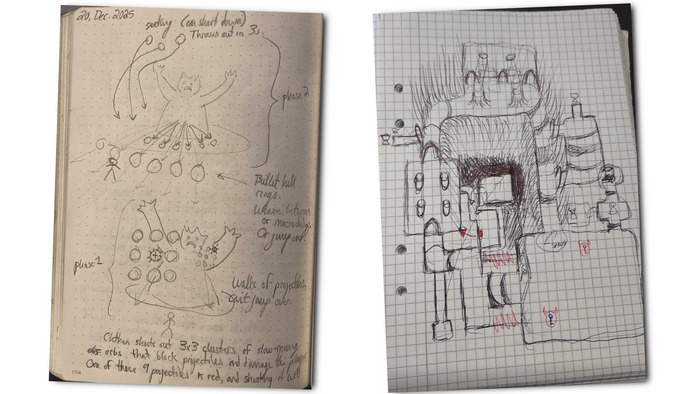 20, Dec. 2025
seeking (can shoot down)
Thrown out in 3s.
phase 2
Bullet hell
rings.
Weave between
or
Or jump over.
phase 1
Walls of projectiles,
can't jump over.
shoots out 3x3 clusters of slow-moving
orbs that block projectiles and damage the
One of these 9 projectiles is red, and shooting it will